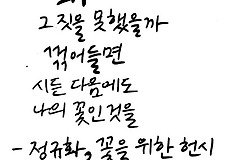 그 짓을 못했을까
꺾어들면
시든 다음에도
나의 꽃인것을
- 정규화, 꽃을 위한 헌시